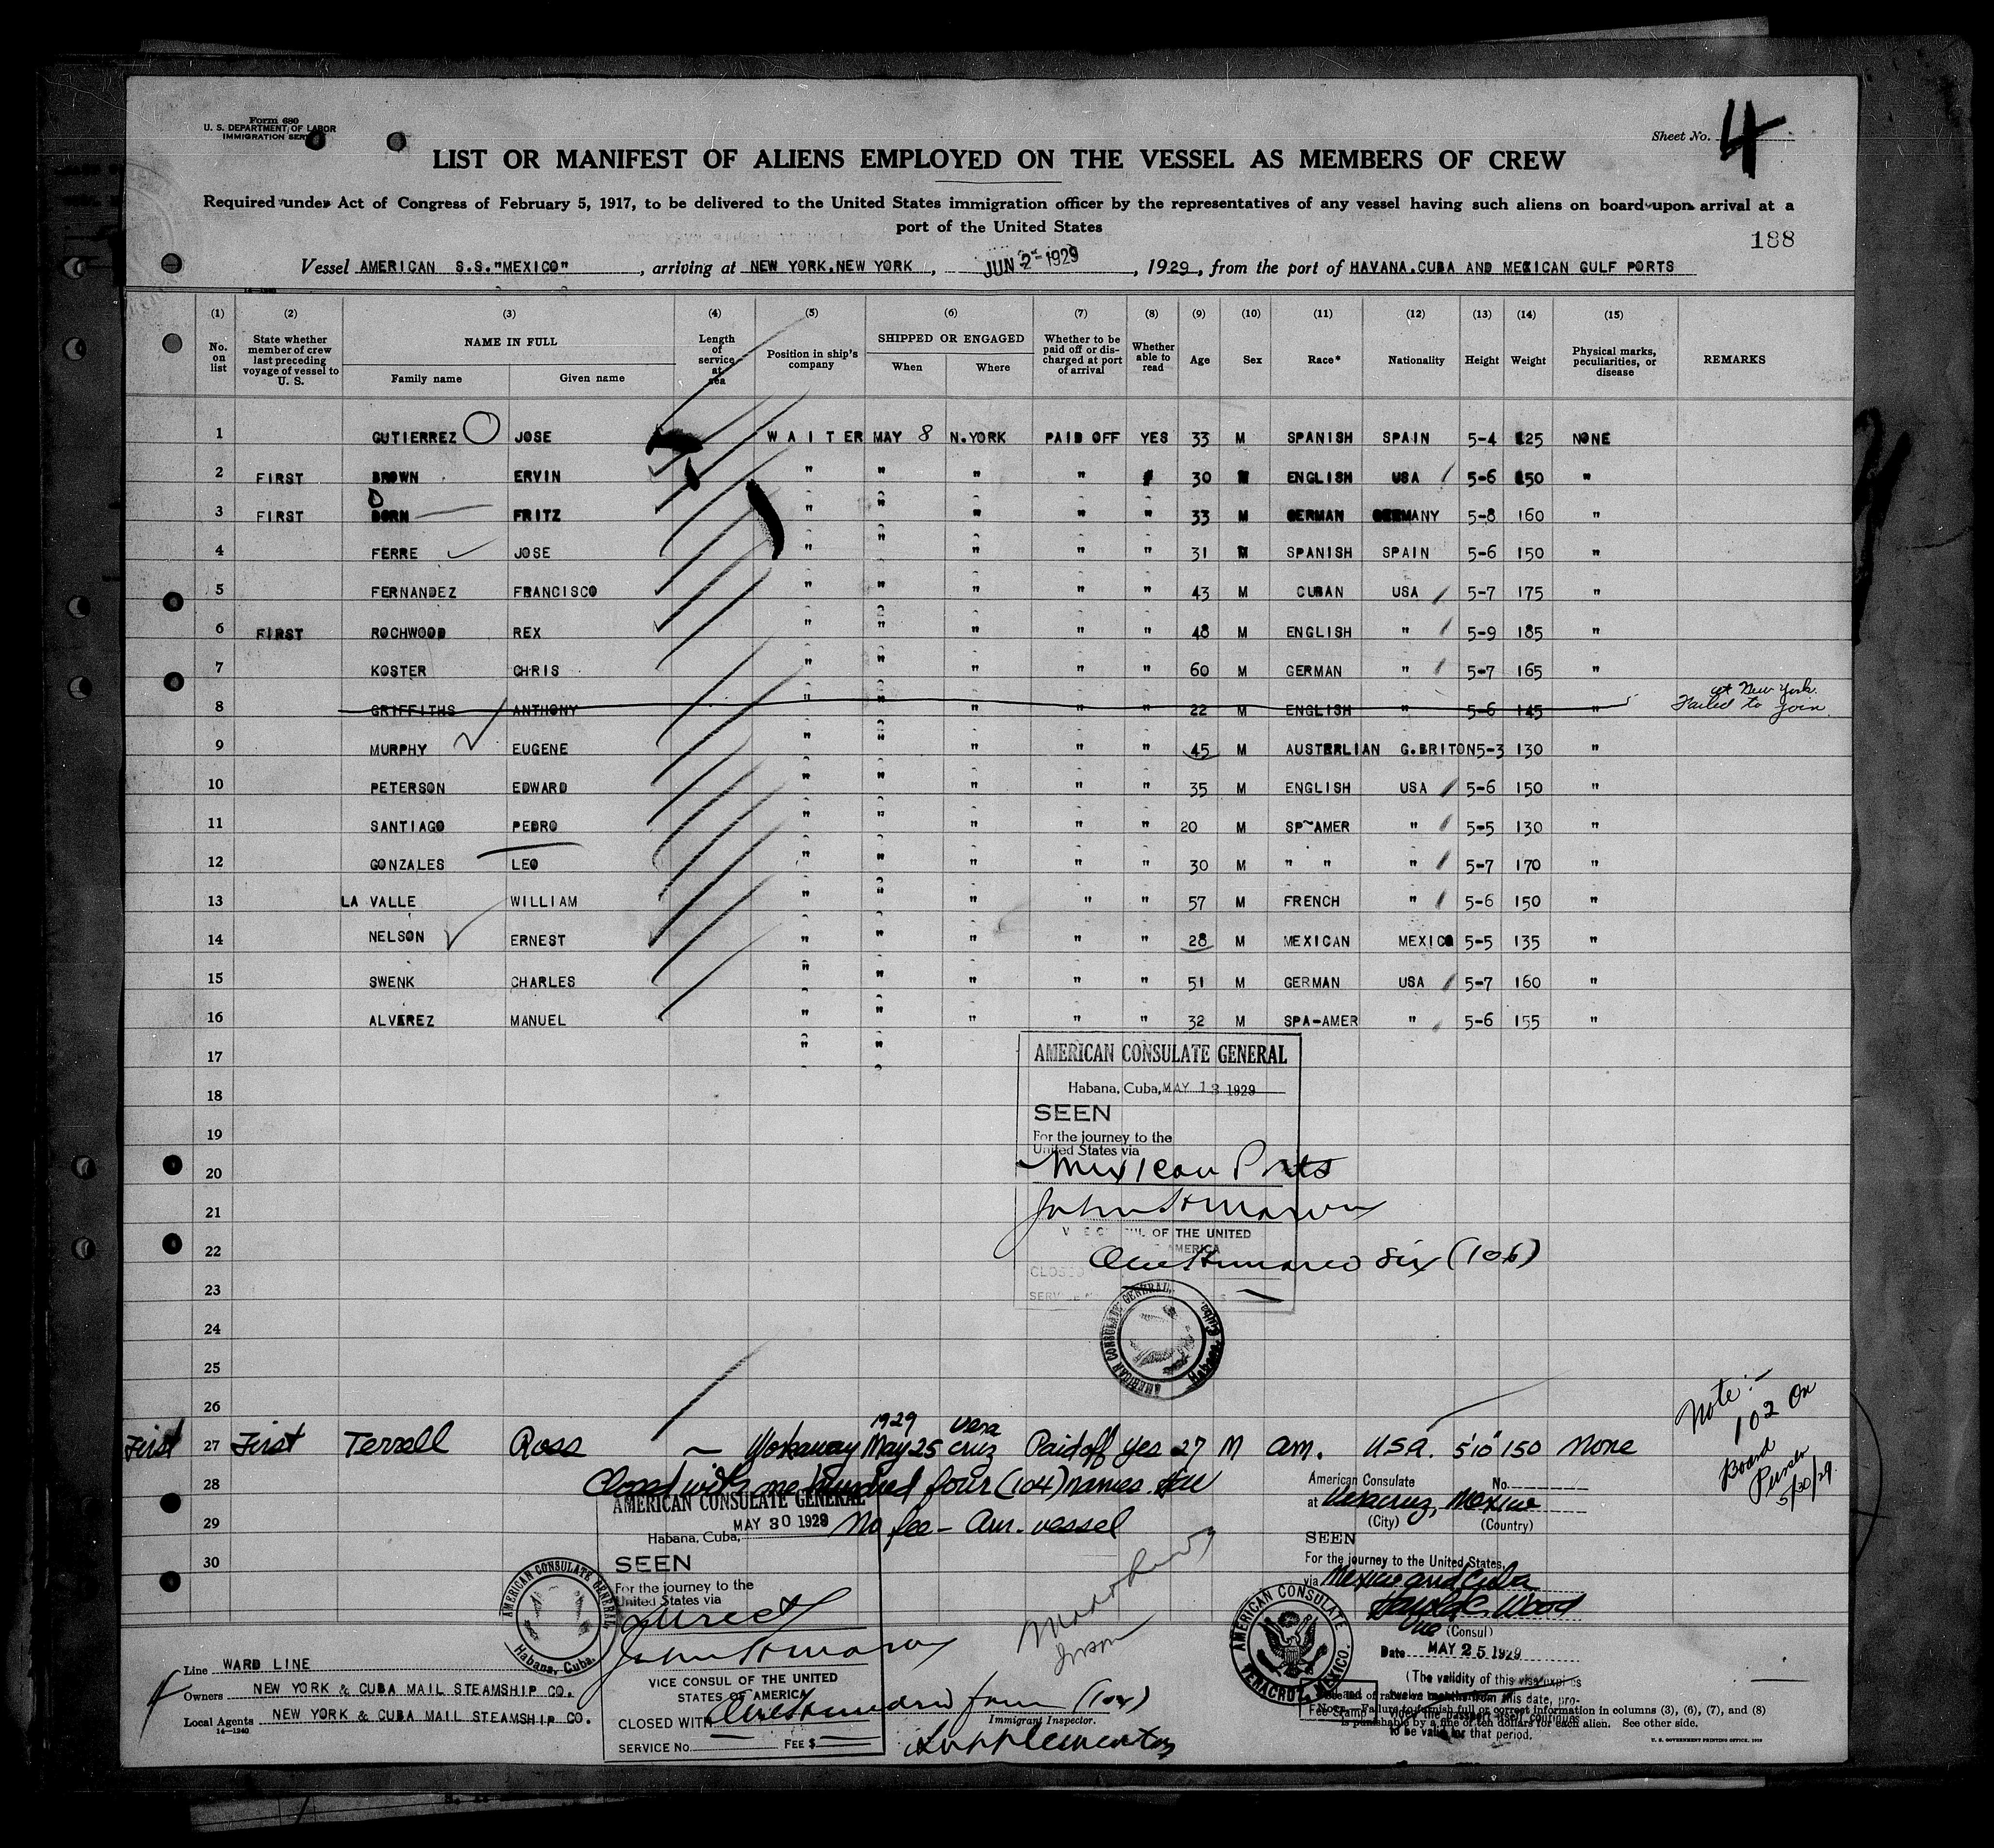 Form 680
U. S. DEPARTMENT OF LABOR
IMMIGRATION
Sheet No. 4
LIST OR MANIFEST OF ALIENS EMPLOYED ON THE VESSEL AS MEMBERS OF CREW
Required under Act of Congress of February 5, 1917, to be delivered to the United States immigration officer by the representatives of any vessel having such aliens on board upon arrival at a
port of the United States
188
Vessel AMERICAN S.S."MEXICO", arriving at NEW YORK.NEW YORK, JUN 2- 1929, 1929, from the port of HAVANA.CUBA AND MEXICAN GULF PORTS
(1) (2) (3) (4) (5) (6) (7) (8) (9) (10) (11) (12) (13) (14) (15)
No. on list
State whether member of crew last preceding voyage of vessel to U. S.
NAME IN FULL
Family name Given name
Length of service at sea
Position in ship's company
SHIPPED OR ENGAGED
When Where
Whether to be paid off or discharged at port of arrival
Whether able to read
Age Sex Race* Nationality Height Weight
Physical marks, peculiarities, or disease
REMARKS
1 GUTIERREZ JOSE WAITER MAY 8 N.YORK PAID OFF YES 33 M SPANISH SPAIN 5-4 125 NONE
2 FIRST BROWN ERVIN " " " " 30 M ENGLISH USA 5-6 150 "
3 FIRST DORN FRITZ " " " " " 33 M GERMAN GERMANY 5-8 160 "
4 FERRE JOSE " " " " " 31 M SPANISH SPAIN 5-6 150 "
5 FERNANDEZ FRANCISCO " " " " " 43 M CUBAN USA 5-7 175 "
6 FIRST ROCHWOOD REX " " " " " 48 M ENGLISH " 5-9 185 "
7 KOSTER CHRIS " " " " " 60 M GERMAN " 5-7 165 "
8 GRIFFITHS ANTHONY " " " " " 22 M ENGLISH " 5-6 145 " at New York. Failed to join.
9 MURPHY EUGENE " " " " " 45 M AUSTERLIAN G.BRITON 5-3 130 "
10 PETERSON EDWARD " " " " " 35 M ENGLISH USA 5-6 150 "
11 SANTIAGO PEDRO " " " " " 20 M SP~AMER " 5-5 130 "
12 GONZALES LEO " " " " " 30 M " " " 5-7 170 "
13 LA VALLE WILLIAM " " " " " 57 M FRENCH " 5-6 150 "
14 NELSON ERNEST " " " " " 28 M MEXICAN MEXICO 5-5 135 "
15 SWENK CHARLES " " " " " 51 M GERMAN USA 5-7 160 "
16 ALVEREZ MANUEL " " " " " 32 M SPA-AMER " 5-6 155 "
17 " "
AMERICAN CONSULATE GENERAL
18
Habana, Cuba, MAY 18 1929
SEEN
19
For the journey to the
United States via
20
Mexican Ports
21
OF THE UNITED
22
AMERICA
One Hundred six (106)
CLOSED
23
24
AMERICAN CONSULATE GENERAL. Habana, Cuba.
25
26
Note:- 102 On Board 5/30/29.
First 27 First Terrell Ross ~ Workaway 1929 May 25 Vera Cruz Paid off yes 27 M Am. U.S.A. 5'10 150 None
28 Closed with one hundred four (104) names.
29 No fee - Am. vessel
30
AMERICAN CONSULATE GENERAL
Habana, Cuba, MAY 30 1929
SEEN
For the journey to the
United States via
direct
VICE CONSUL OF THE UNITED
STATES OF AMERICA
CLOSED WITH One Hundred four (104)
SERVICE No. FEE $
Supplementary
AMERICAN CONSULATE GENERAL Habana, Cuba.
American Consulate No.
at Veracruz, Mexico
(City) (Country)
SEEN
For the journey to the United States,
via Mexico and Cuba
Wood
Vice (Consul)
Date MAY 25 1929
(The validity of this visa expires
twelve months from this date, pro-
the passport itself continues
to be valid for that period.
Fee Stamp
AMERICAN CONSULATE VERACRUZ, MEXICO.
Immigrant Inspector.
Line WARD LINE
Owners NEW YORK & CUBA MAIL STEAMSHIP CO.
Local Agents NEW YORK & CUBA MAIL STEAMSHIP CO.
14—1940
Failure to furnish full or correct information in columns (3), (6), (7), and (8)
is punishable by a fine of ten dollars for each alien. See other side.
U. S. GOVERNMENT PRINTING OFFICE